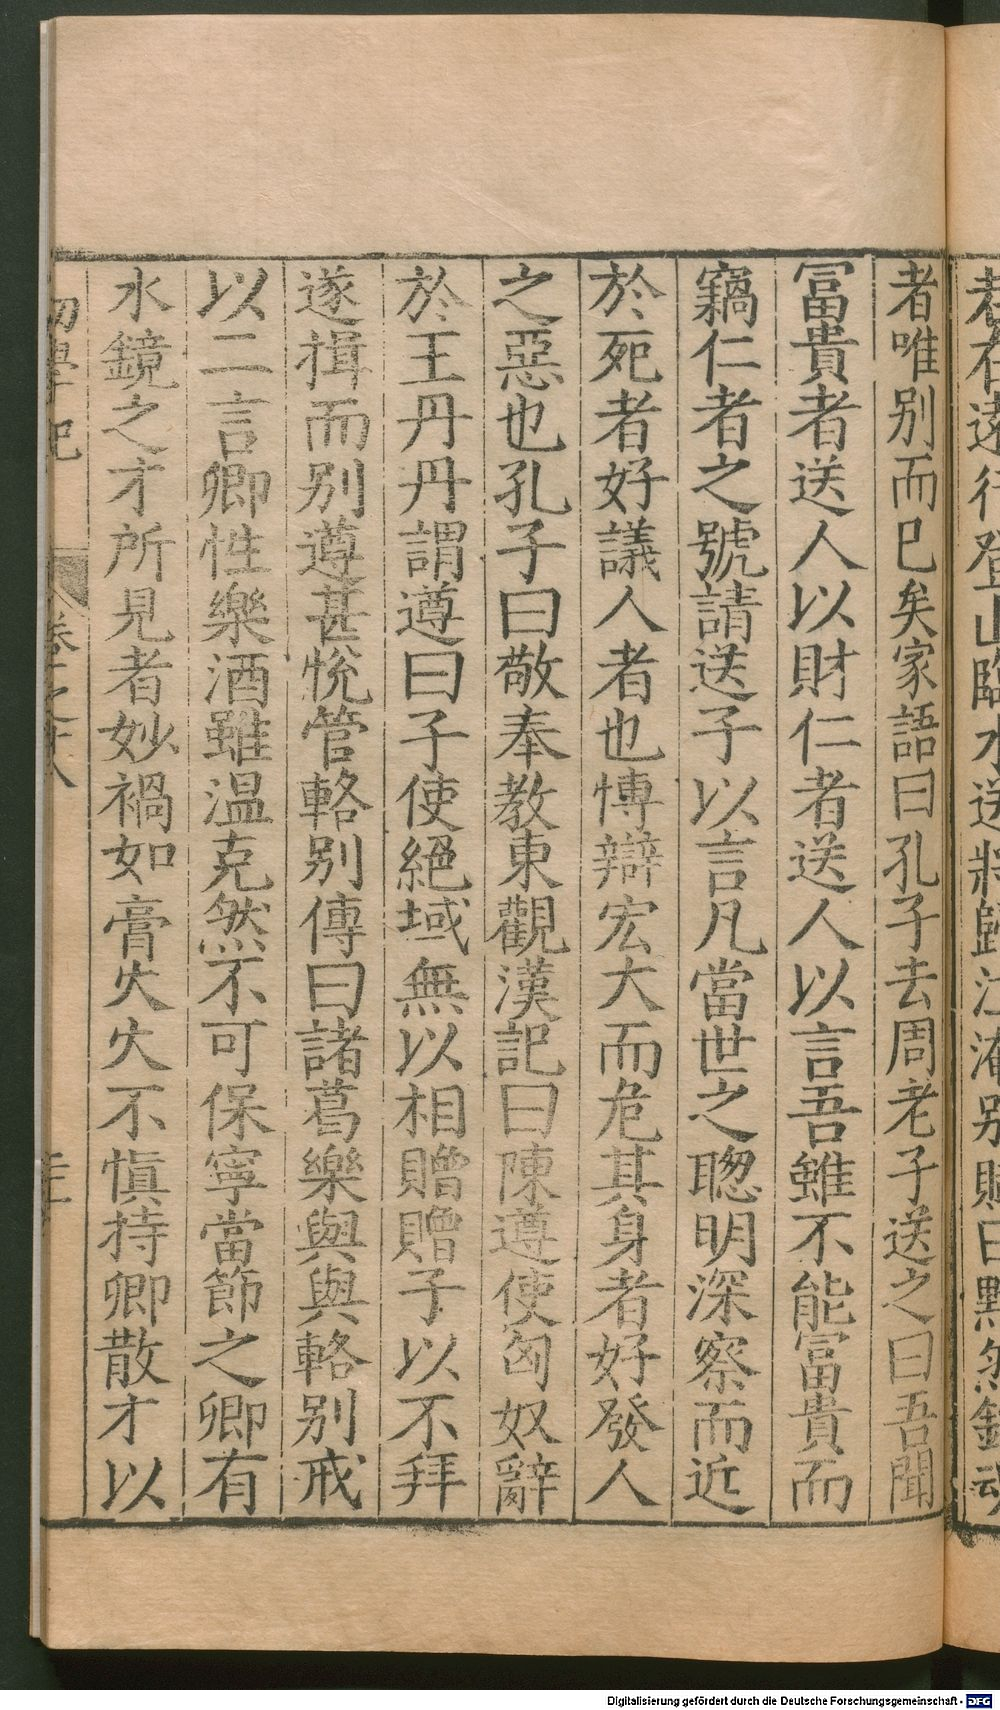 者唯别而已矣家語曰孔子去周老子送之曰吾聞
冨貴者送人以財仁者送人以言吾雖不能冨貴而
竊仁者之號請送子以言凡當世之聦明深察而近
於死者好議人者也愽辯宏大而危其身者好發人
之惡也孔子曰敬奉教東觀漢記曰陳遵使匈奴辭
於王丹丹謂遵曰子使絕域無以相贈贈子以不拜
遂揖而别遵甚悅管輅别傳曰諸葛樂與與輅别戒
以二言卿性樂酒雖温克然不可保寧當節之卿有
水鏡之才所見者妙禍如膏火火不慎持卿散才以
初學記
卷之十八
Digitalisierung gefördert durch die Deutsche Forschungsgemeinschaft - DFG